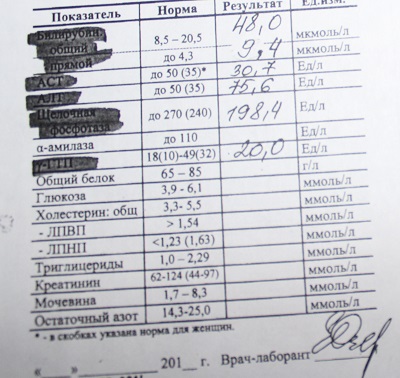 Показатель Норма Результат Ед.изм.
Билирубин: общий 8,5 – 20,5 48,0 мкмоль/л
прямой до 4,3 9,4 мкмоль/л
АСТ до 50 (35)* 30,7 Ед/л
АЛТ до 50 (35) 75,6 Ед/л
Щелочная фосфотаза до 270 (240) 198,4 Ед/л
α-амилаза до 110 Ед/л
γ-ГТП 18(10)-49(32) 20,0 Ед/л
Общий белок 65 – 85 г/л
Глюкоза 3,9 - 6,1 ммоль/л
Холестерин: общ 3,3- 5,5 ммоль/л
- ЛПВП > 1,54 ммоль/л
- ЛПНП <1,23 (1,63) ммоль/л
Триглицериды 1,0 – 2,29 ммоль/л
Креатинин 62-124 (44-97) ммоль/л
Мочевина 1,7 – 8,3 ммоль/л
Остаточный азот 14,3-25,0 ммоль/л
* - в скобках указана норма для женщин.
«____»________201__ г. Врач-лаборант